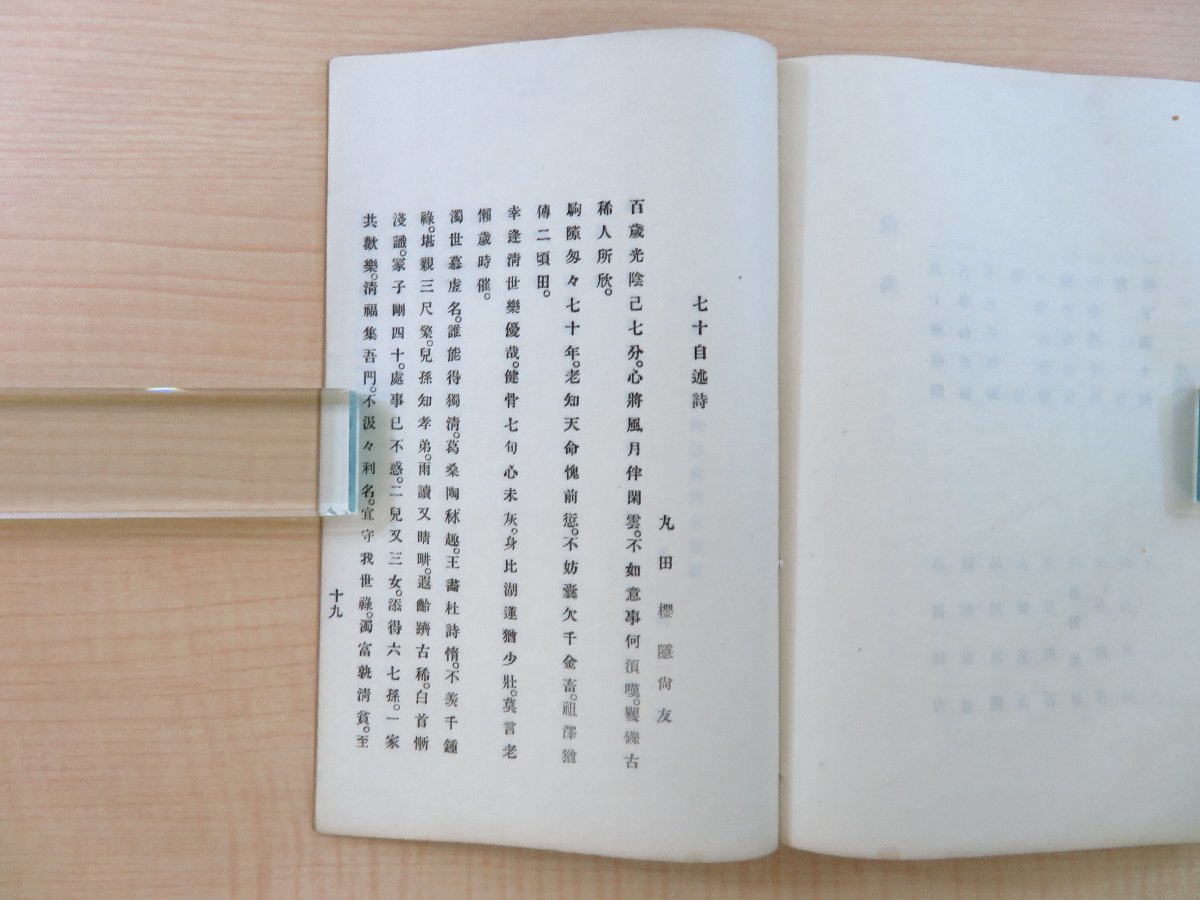 七十自述詩
丸田櫻隱尙友
百歲光陰已七分。心將風月伴閑雲。不如意事何須嘆。矍鑠古
稀人所欣。
駒隙匆々七十年。老知天命愧前愆。不妨囊欠千金畜。祖澤猶
傳二頃田。
幸逢淸世樂優哉。健骨七旬心未灰。身比湖蓮猶少壯。莫言老
懶歲時催。
濁世慕虛名。誰能得獨淸。葛桑陶秫趣。王畵杜詩情。不羨千鍾
祿。堪親三尺檠。兒孫知孝弟。雨讀又晴畊。遐齡躋古稀。白首慚
淺識。冢子剛四十。處事已不惑。二兒又三女。添得六七孫。一家
共歡樂。淸福集吾門。不汲々利名。宜守我世祿。濁富孰淸貧。至
十九